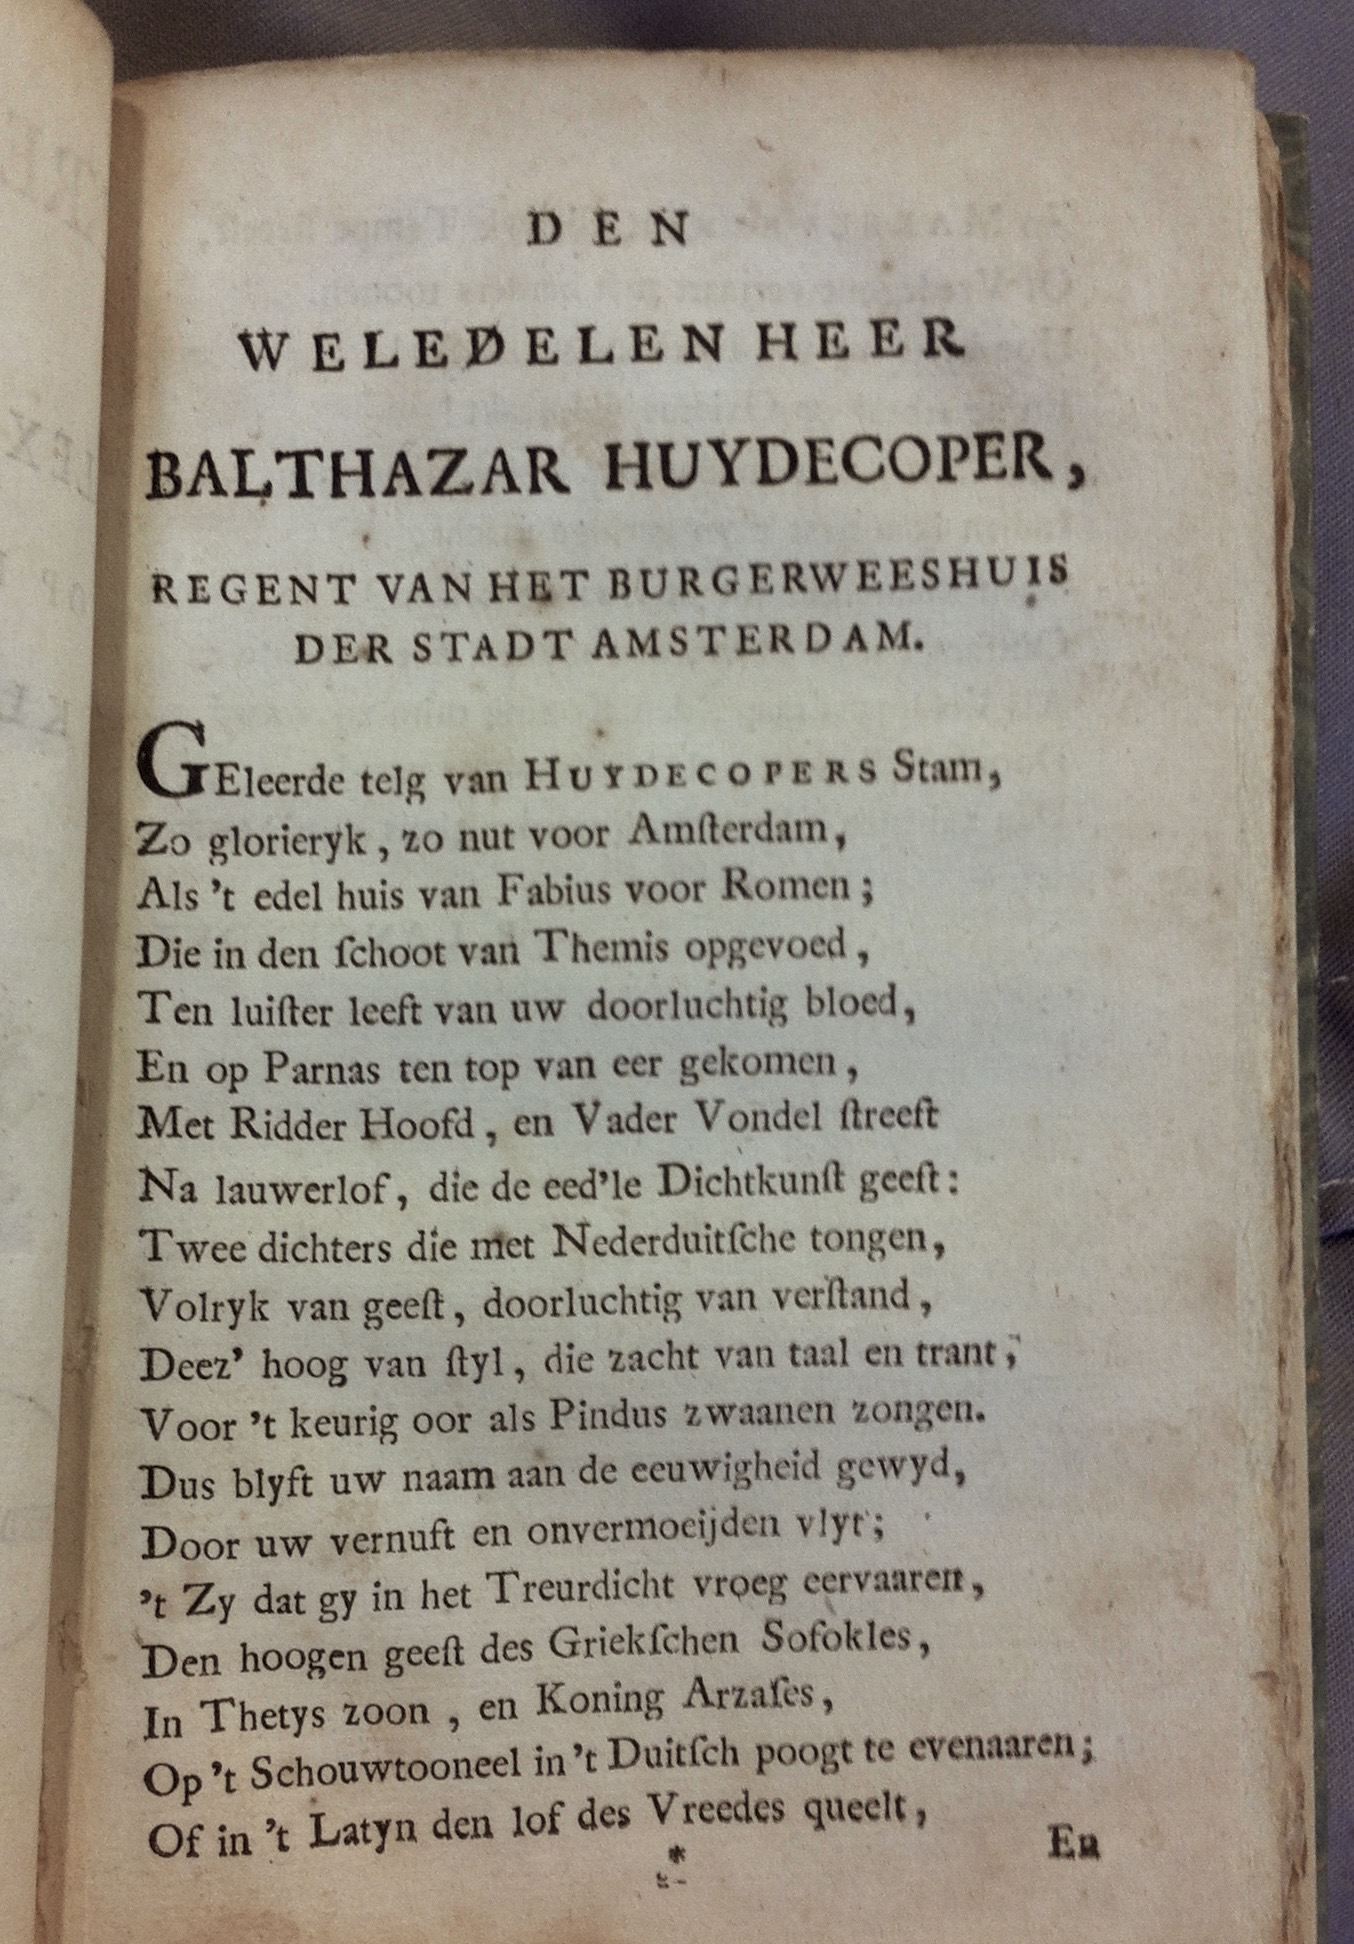 DEN
WELEDELEN HEER
BALTHAZAR HUYDECOPER,
REGENT VAN HET BURGERWEESHUIS
DER STADT AMSTERDAM.
GEleerde telg van HUYDECOPERS Stam,
Zo glorieryk, zo nut voor Amſterdam,
Als 't edel huis van Fabius voor Romen;
Die in den ſchoot van Themis opgevoed,
Ten luiſter leeft van uw doorluchtig bloed,
En op Parnas ten top van eer gekomen,
Met Ridder Hoofd, en Vader Vondel ſtreeft
Na lauwerlof, die de eed'le Dichtkunſt geeft:
Twee dichters die met Nederduitſche tongen,
Volryk van geeſt, doorluchtig van verſtand,
Deez' hoog van ſtyl, die zacht van taal en trant,
Voor 't keurig oor als Pindus zwaanen zongen.
Dus blyft uw naam aan de eeuwigheid gewyd,
Door uw vernuft en onvermoeijden vlyt;
't Zy dat gy in het Treurdicht vroeg eervaaren,
Den hoogen geeſt des Griekſchen Sofokles,
In Thetys zoon, en Koning Arzaſes,
Op 't Schouwtooneel in 't Duitſch poogt te evenaaren;
Of in 't Latyn den lof des Vreedes queelt,
*
En